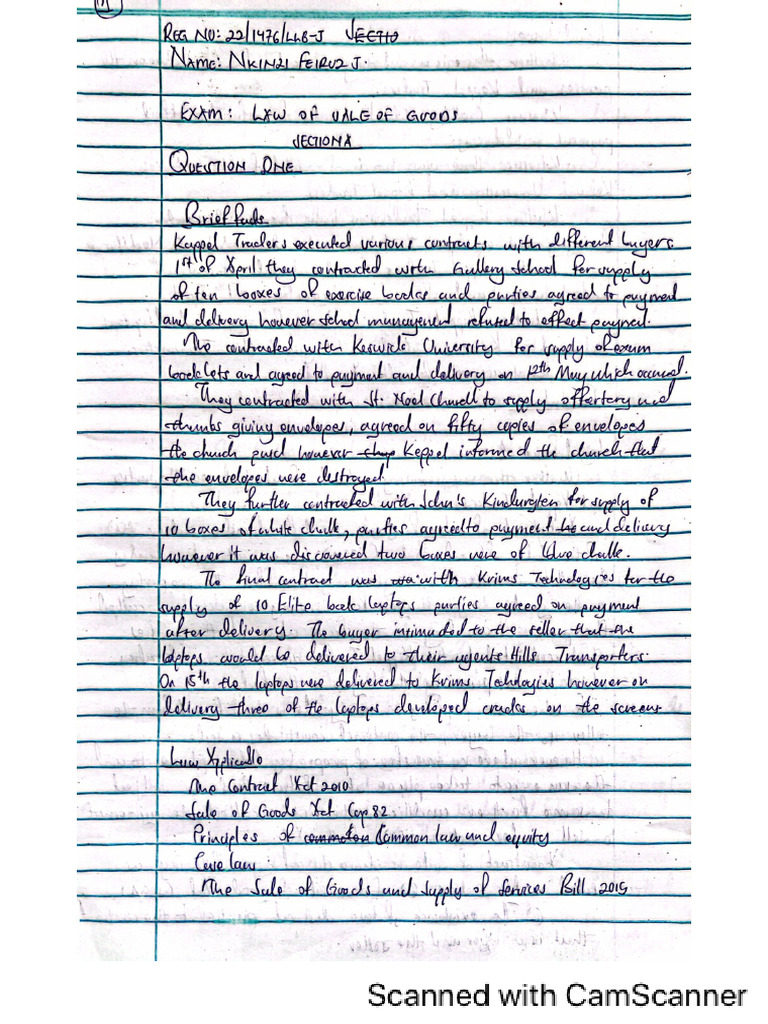 1
REG NO: 22/1476/LLB-J SECTIO
NAME: NKINZI FEIRUZ J.
EXAM: LAW OF SALE OF GOODS
SECTION A
QUESTION ONE
Brief facts
Keppel Traders executed various contracts with different buyers
1st of April they contracted with Gallery School for supply
of ten boxes of exercise books and parties agreed to payment
and delivery however school management refused to effect payment.
The contracted with Keswick University for supply of exam
booklets and agreed to payment and delivery on 12th May which occured.
They contracted with St. Noel Church to supply offertory and
thanks giving envelopes, agreed on fifty copies of envelopes
the church paid however they Keppel informed the church that
the envelopes were destroyed
They further contracted with John's Kindergten for supply of
10 boxes of white chalk, parties agreed to payment and delivery
however it was discovered two boxes were of blue chalk.
The final contract was with Krims Technologies for the
supply of 10 Elite book laptops parties agreed on payment
after delivery. The buyer intimaded to the seller that the
laptops would be delivered to their agents Hills Transporters.
On 15th the laptops were delivered to Krims Techologies however on
delivery three of the laptops developed cracks on the screens
Law Applicable
The Contract Act 2010
Sale of Goods Act Cap 82
Principles of common Common law and equity
Case law
The Sale of Goods and Supply of Services Bill 2015
Scanned with CamScanner